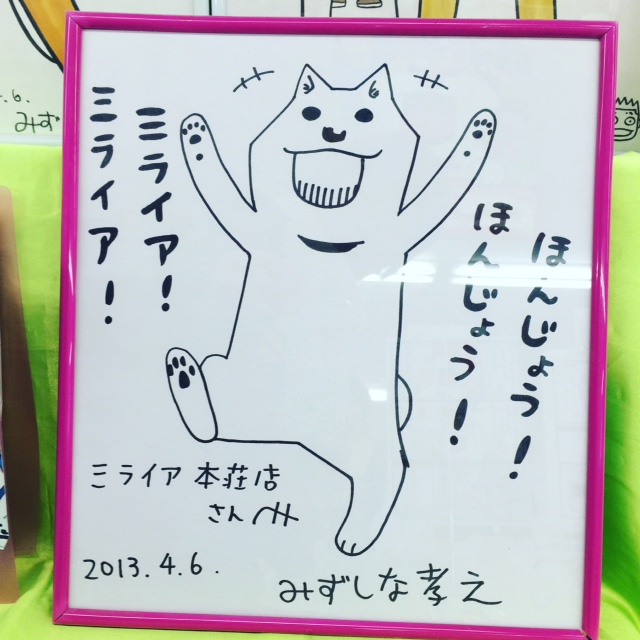 ほんじょう!
ほんじょう!
ミライア!
ミライア!
ミライア 本荘店
さん江
2013.4.6.
みずしな孝之
.6.
みず